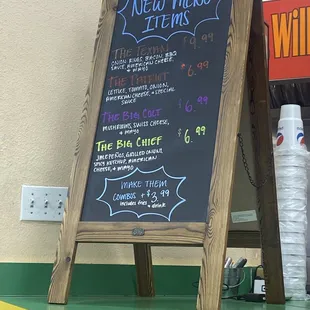 NEW MENU
ITEMS
THE TEXAN $9.99
ONION RINGS, BACON, BBQ
SAUCE, AMERICAN CHEESE,
& MAYO
THE PATRIOT $6.99
LETTUCE, TOMATO, ONION,
AMERICAN CHEESE, & SPECIAL
SAUCE
THE BIG COLT $6.99
MUSHROOMS, SWISS CHEESE,
& MAYO
THE BIG CHIEF $6.99
JALAPEÑOS, GRILLED ONIONS,
SPICY KETCHUP, AMERICAN
CHEESE, & MAYO
MAKE THEM
COMBOS +$3.99
INCLUDES FRIES & DRINK
Will